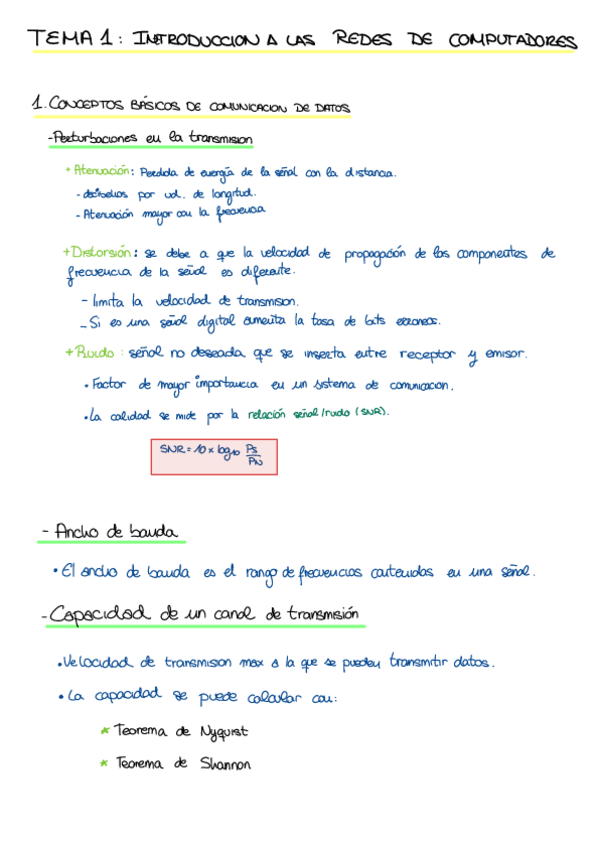 TEMA 1: INTRODUCCION A LAS REDES DE COMPUTADORES
1. CONCEPTOS BÁSICOS DE COMUNICACION DE DATOS
- Perturbaciones en la transmision
+ Atenuación: Perdida de energía de la señal con la distancia.
- decibelios por ud. de longitud.
- Atenuación mayor con la frecuencia
+ Distorsión: se debe a que la velocidad de propagación de los componentes de
frecuencia de la señal es diferente.
- limita la velocidad de transmision.
- Si es una señal digital aumenta la tasa de bits erroneos.
+ Ruido: señal no deseada que se inserta entre receptor y emisor.
• Factor de mayor importancia en un sistema de comunicacion.
• La calidad se mide por la relación señal/ruido (SNR).
SNR = 10 × log10 Ps/PN
- Ancho de banda
• El ancho de banda es el rango de frecuencias contenidas en una señal.
- Capacidad de un canal de transmisión
• Velocidad de transmision max a la que se pueden transmitir datos.
• La capacidad se puede calcular con:
* Teorema de Nyquist
* Teorema de Shannon